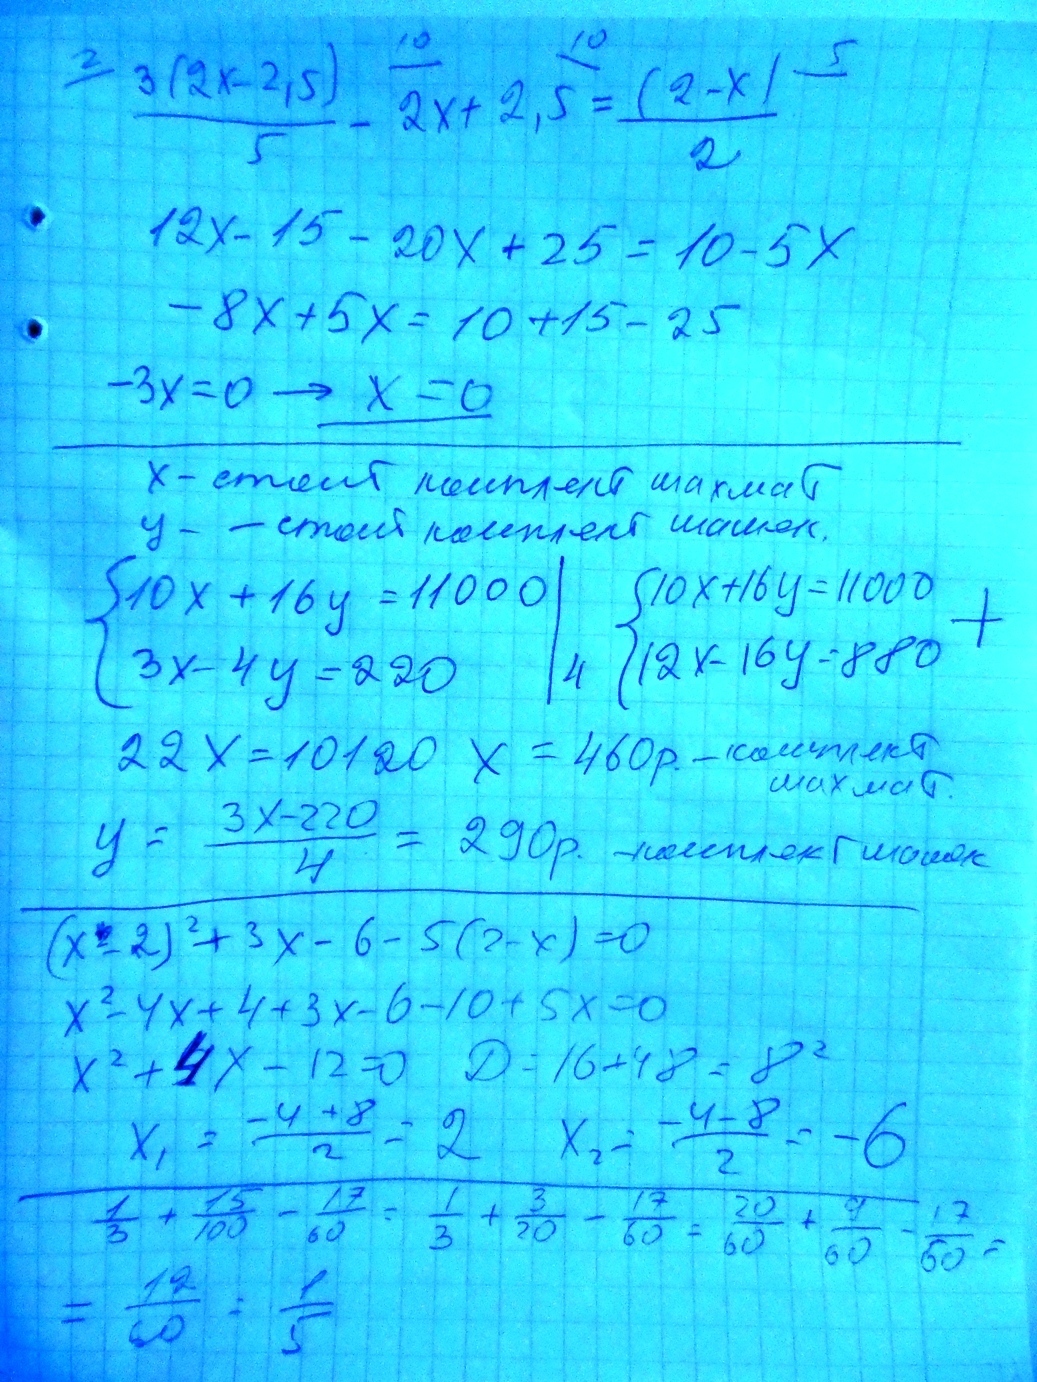 2 3(2x-2,5)/5 - 2x 10 + 2,5 10 = (2-x)/2 5
12x-15-20x+25=10-5x
-8x+5x=10+15-25
-3x=0 → x=0
x-стоит комплект шахмат
y- -стоит комплект шашек.
{10x+16y=11000 | {10x+16y=11000 +
3x-4y=220 | 4 12x-16y=880
22x=10120 x=460р. -комплект
шахмат.
y = 3x-220/4 = 290р. -комплект шашек
(x-2)²+3x-6-5(2-x)=0
x²-4x+4+3x-6-10+5x=0
x²+4x-12=0 D=16+48=8²
x₁ = -4+8/2 = 2 x₂= -4-8/2 = -6
1/3 + 15/100 - 17/60 = 1/3 + 3/20 - 17/60 = 20/60 + 9/60 - 17/60 =
= 12/60 = 1/5